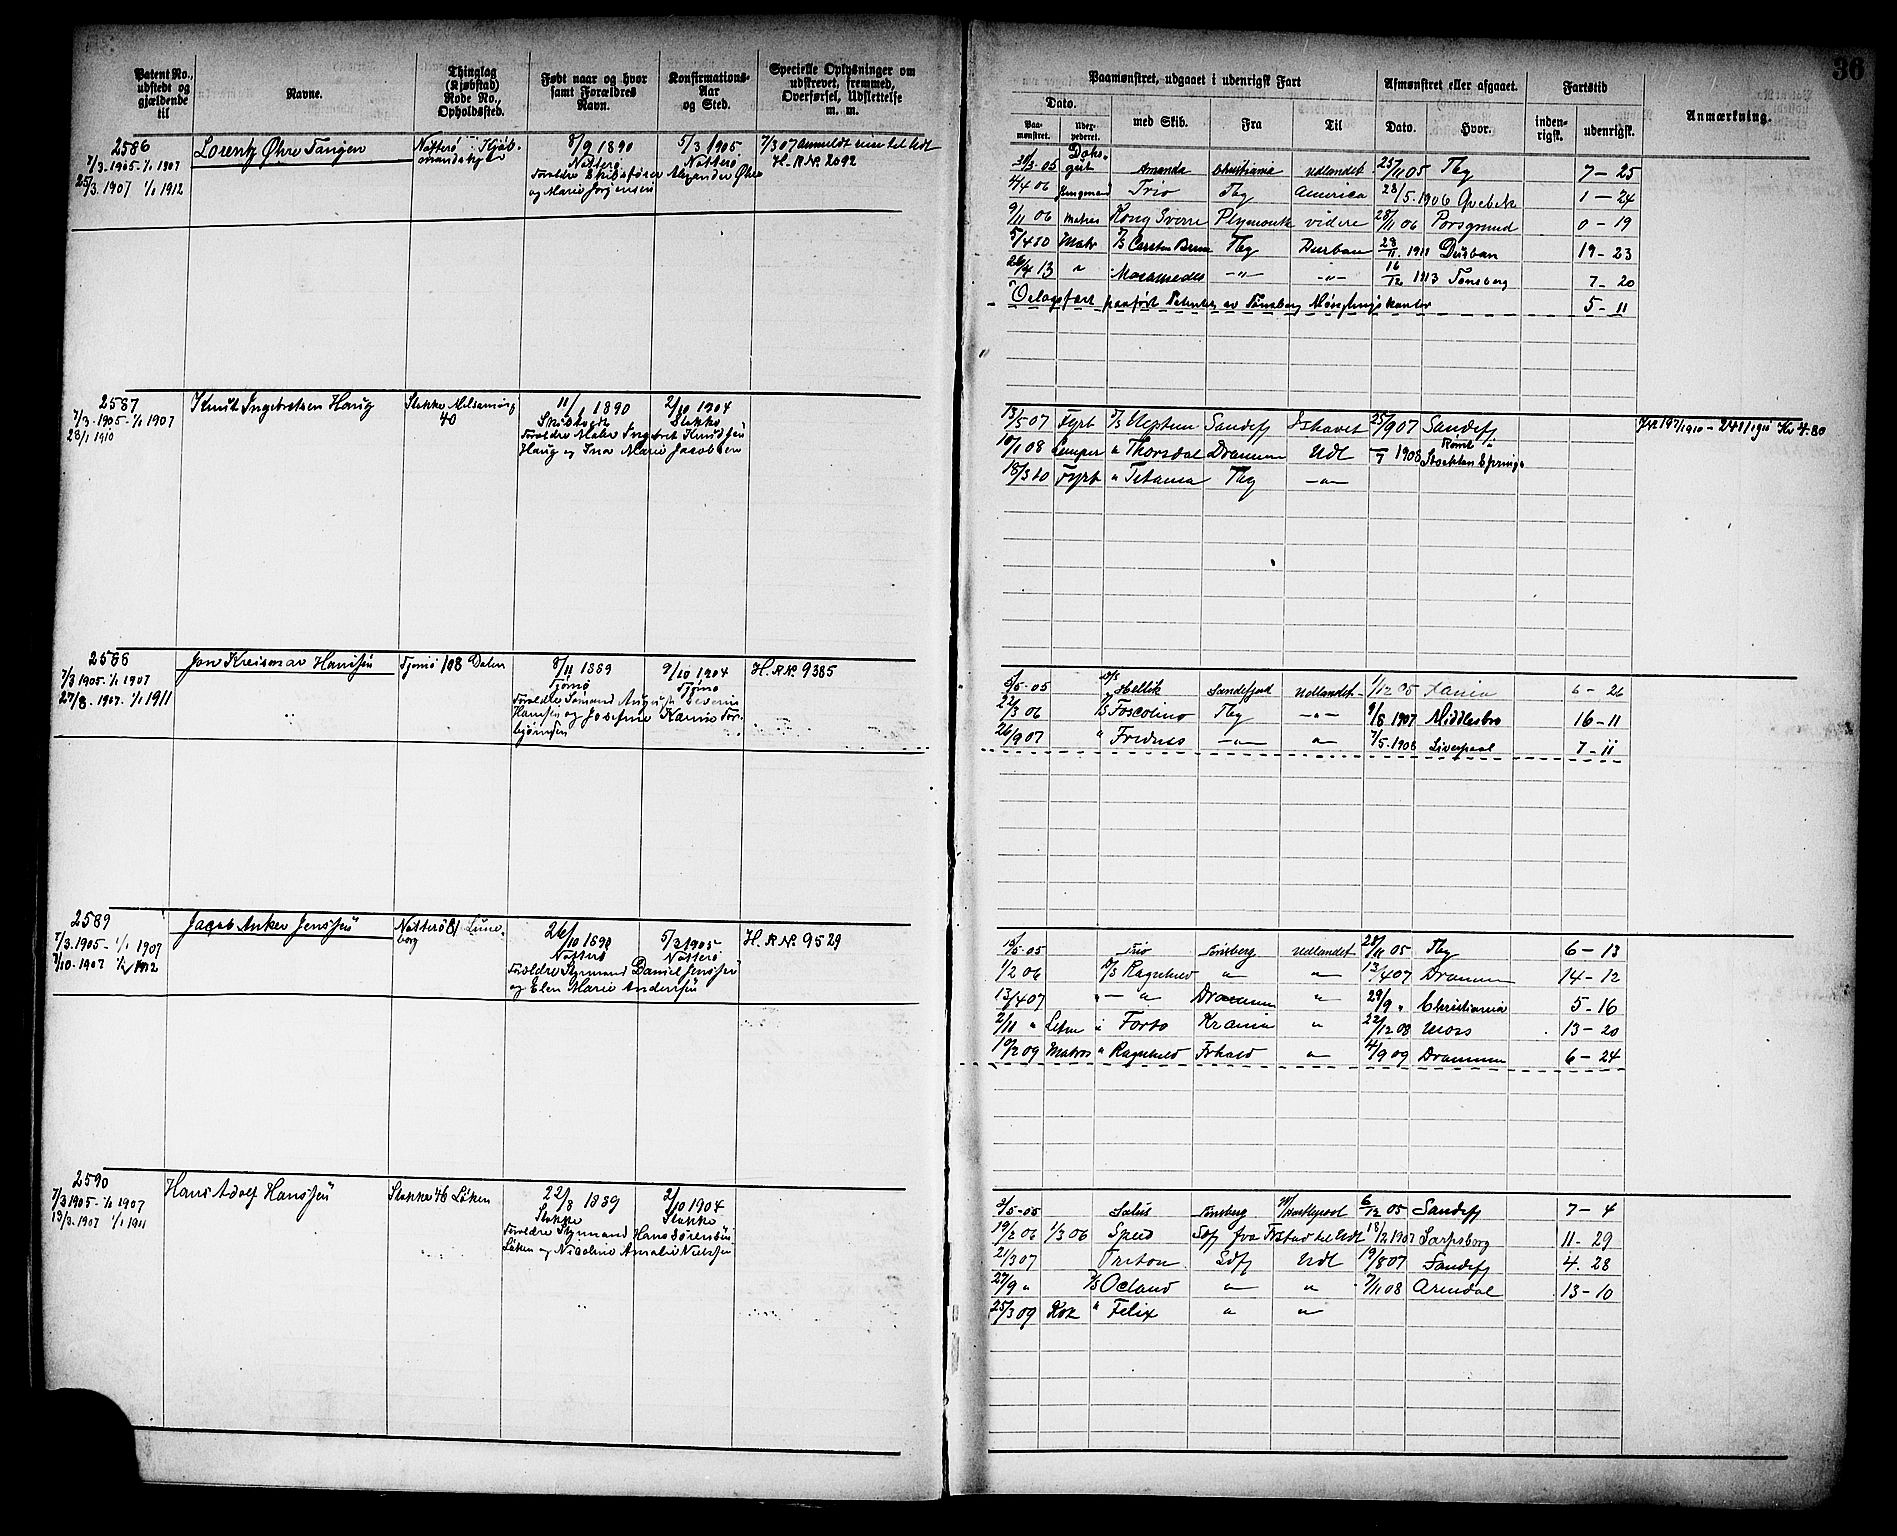 36
Patent No., udstedt og gjældende til
Navne.
Thinglag (Kjøbstad) Rode No., Opholdssted.
Født naar og hvor samt Forældres Navn.
Konfirmations- Aar og Sted.
Specielle Oplysninger om udskrevet, fremmed, Overførsel, Udslettelse m. m.
Paamønstret, udgaaet i udenrigsk Fart
Afmønstret eller afgaaet.
Fartstid
Anmærkning.
Dato.
Paa- mønstret.
med Skib.
Fra
Til
Dato.
Hvor.
inden- rigsk.
udenrigsk.
2586
7/3 1905 - 1/1 1907
25/3 1907 1/1 1912
Lorentz Øhre Tangen
Nøtterø Kjøb-
mandskjær
8/9 1890
Nøtterø
Forældre Skibsfører Alexander Øhre
og Marie Jørgensen
5/3 1905
Nøtterø
7/3 07 anmeldt
H. R No. 2092
31/3 05 Dæks-
gut Amanda Christiania Udlandet 25/11 05 Tbg 7 - 25
4/4 06 Jungmand Trio Tbg America 28/5 1906 Qvebek 1 - 24
9/11 06 Matros Kong Sverre Plymouth videre 28/11 06 Porsgrund 0 - 19
5/4 10 Matr Carsten Bruun Tbg Durban 28/11 1911 Durban 19 - 23
26/4 13 " Mossamedes - " - - " - 16/12 1913 Tønsberg 7 - 20
paaført av Tønsberg Mønstringskontor 5 - 11
2587
7/3 1905 - 1/1 1907
28/1 1910
Knut Ingebretsen Haug
Stokke Melsomvig
40
11/1 1890
Stokke
Forældre Matr Ingebret Knudsen
Haug og Ina Marie Jacobsen
2/10 1904
Stokke
13/5 07 Fyrb Neptun Sandefj Ishavet 25/9 07 Sandefj
10/1 08 Lemper " Thorsdal Drammen Udl 1908
18/3 10 Fyrb " Titania Tbg - " -
2588
7/3 1905 - 1/1 1907
27/8 1907 - 1/1 1911
Jon Kreismar Hansen
Tjømø 108 Dalen
8/11 1889
Tjømø
Forældre Sømand August Severin
Hansen og Josefine Karine Tor-
bjørnsen
9/10 1904
Tjømø
H. R No. 9385
5/5 - 05 Hellik Sandefjord Udlandet 1/12 05 6 - 26
22/3 06 Foscolino Tbg - " - 9/8 1907 Middlesbro 16 - 11
26/9 07 " Fridnes - " - " 7/5 1908 Liverpool 7 - 11
2589
7/3 1905 - 1/1 1907
7/10 1907 1/1 1912
Jacob Anker Jenssen
Nøtterø 81 Lune-
borg
26/10 1890
Nøtterø
Forældre Sømand Daniel Jenssen
og Elen Marie Andersen
5/3 1905
Nøtterø
H. R No. 9529
15/5 - 05 Trio Tønsberg Udlandet 28/11 05 Tbg 6 - 13
1/2 06 Ragnhild " " 13/4 07 Drammen 14 - 12
13/4 07 " - " Drammen " 29/9 " Christiania 5 - 16
2/11 " Letm " Forto Krania " 22/12 08 Moss 13 - 20
10/2 09 Matros " Ragnhild Frhald " 4/9 09 Drammen 6 - 24
2590
7/3 1905 - 1/1 1907
19/3 1907 1/1 1911
Hans Adolf Hanssen
Stokke 46 Løken
22/8 1889
Stokke
Forældre Sømand Hans Sørensen
Løken og Nicoline Amalie Nielsen
2/10 1904
Stokke
3/5 - 05 Salus Tønsberg 6/12 05 Sandefj 7 - 4
19/2 06 1/3 06 Speed Sdfj fra Frstad til Udl 18/2 1907 Sarpsborg 11 - 29
21/3 07 Triton Sdfj Udl 19/8 07 Sandefj 4 - 28
27/9 " Ocland " " 7/11 08 Arendal 13 - 10
25/3 09 Kok " Felix " "